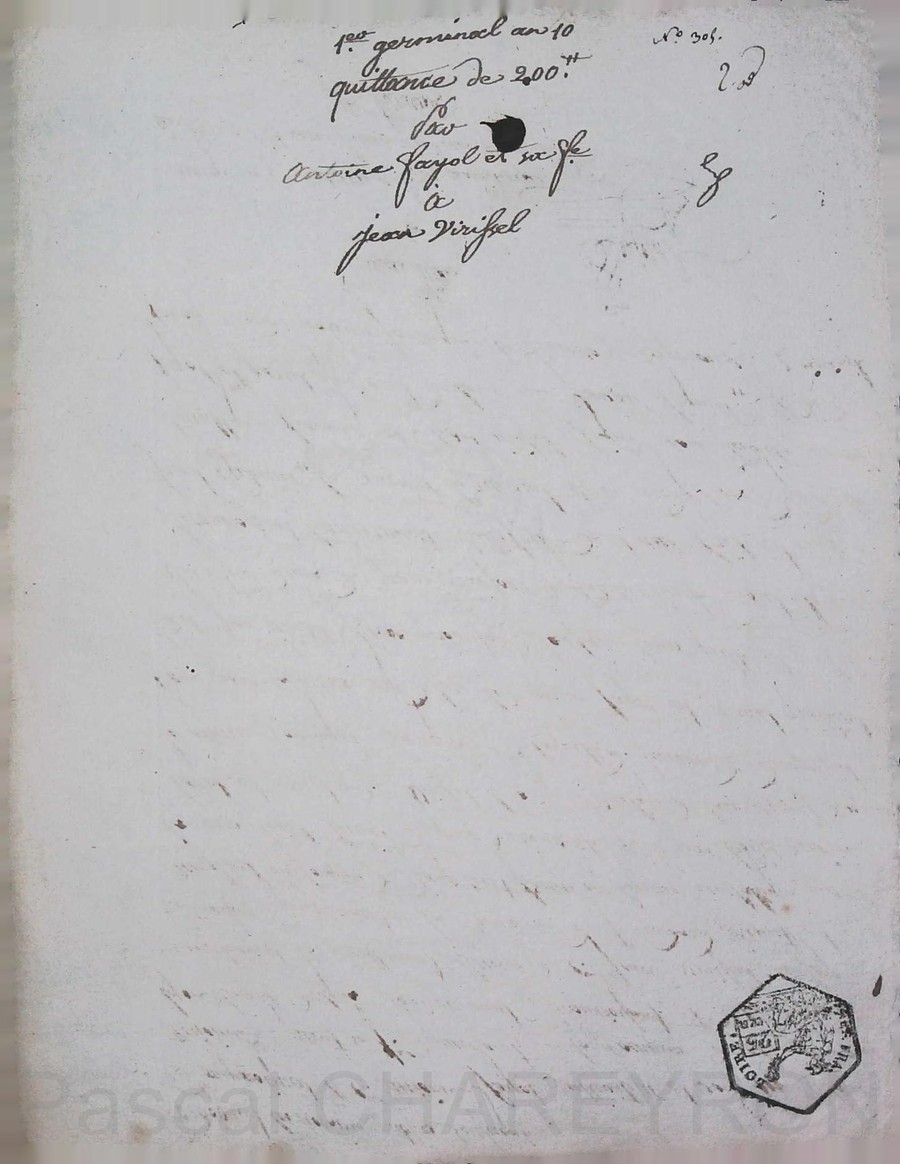 1er germinal an 10
N.o 305.
quittance de 200.tt
Par
Antoine fayol et sa fe
à
jean Virissel
Pascal CHAREYRON